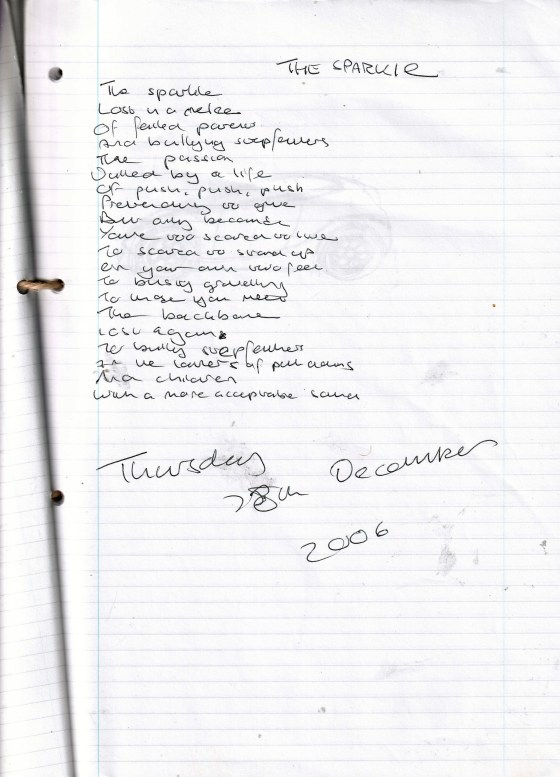 THE SPARKLE
The sparkle
Lost in a melee
Of failed parents
And bullying stepfathers
The passion
Dulled by a life
Of push, push, push
Pretending to give
But only because
You're too scared to live
To scared to stand up
on your own two feet
To busy grovelling
To those you need
The backbone
Lost again
To bully stepfathers
of
And children
with a more acceptable
Thursday
28th December
2006